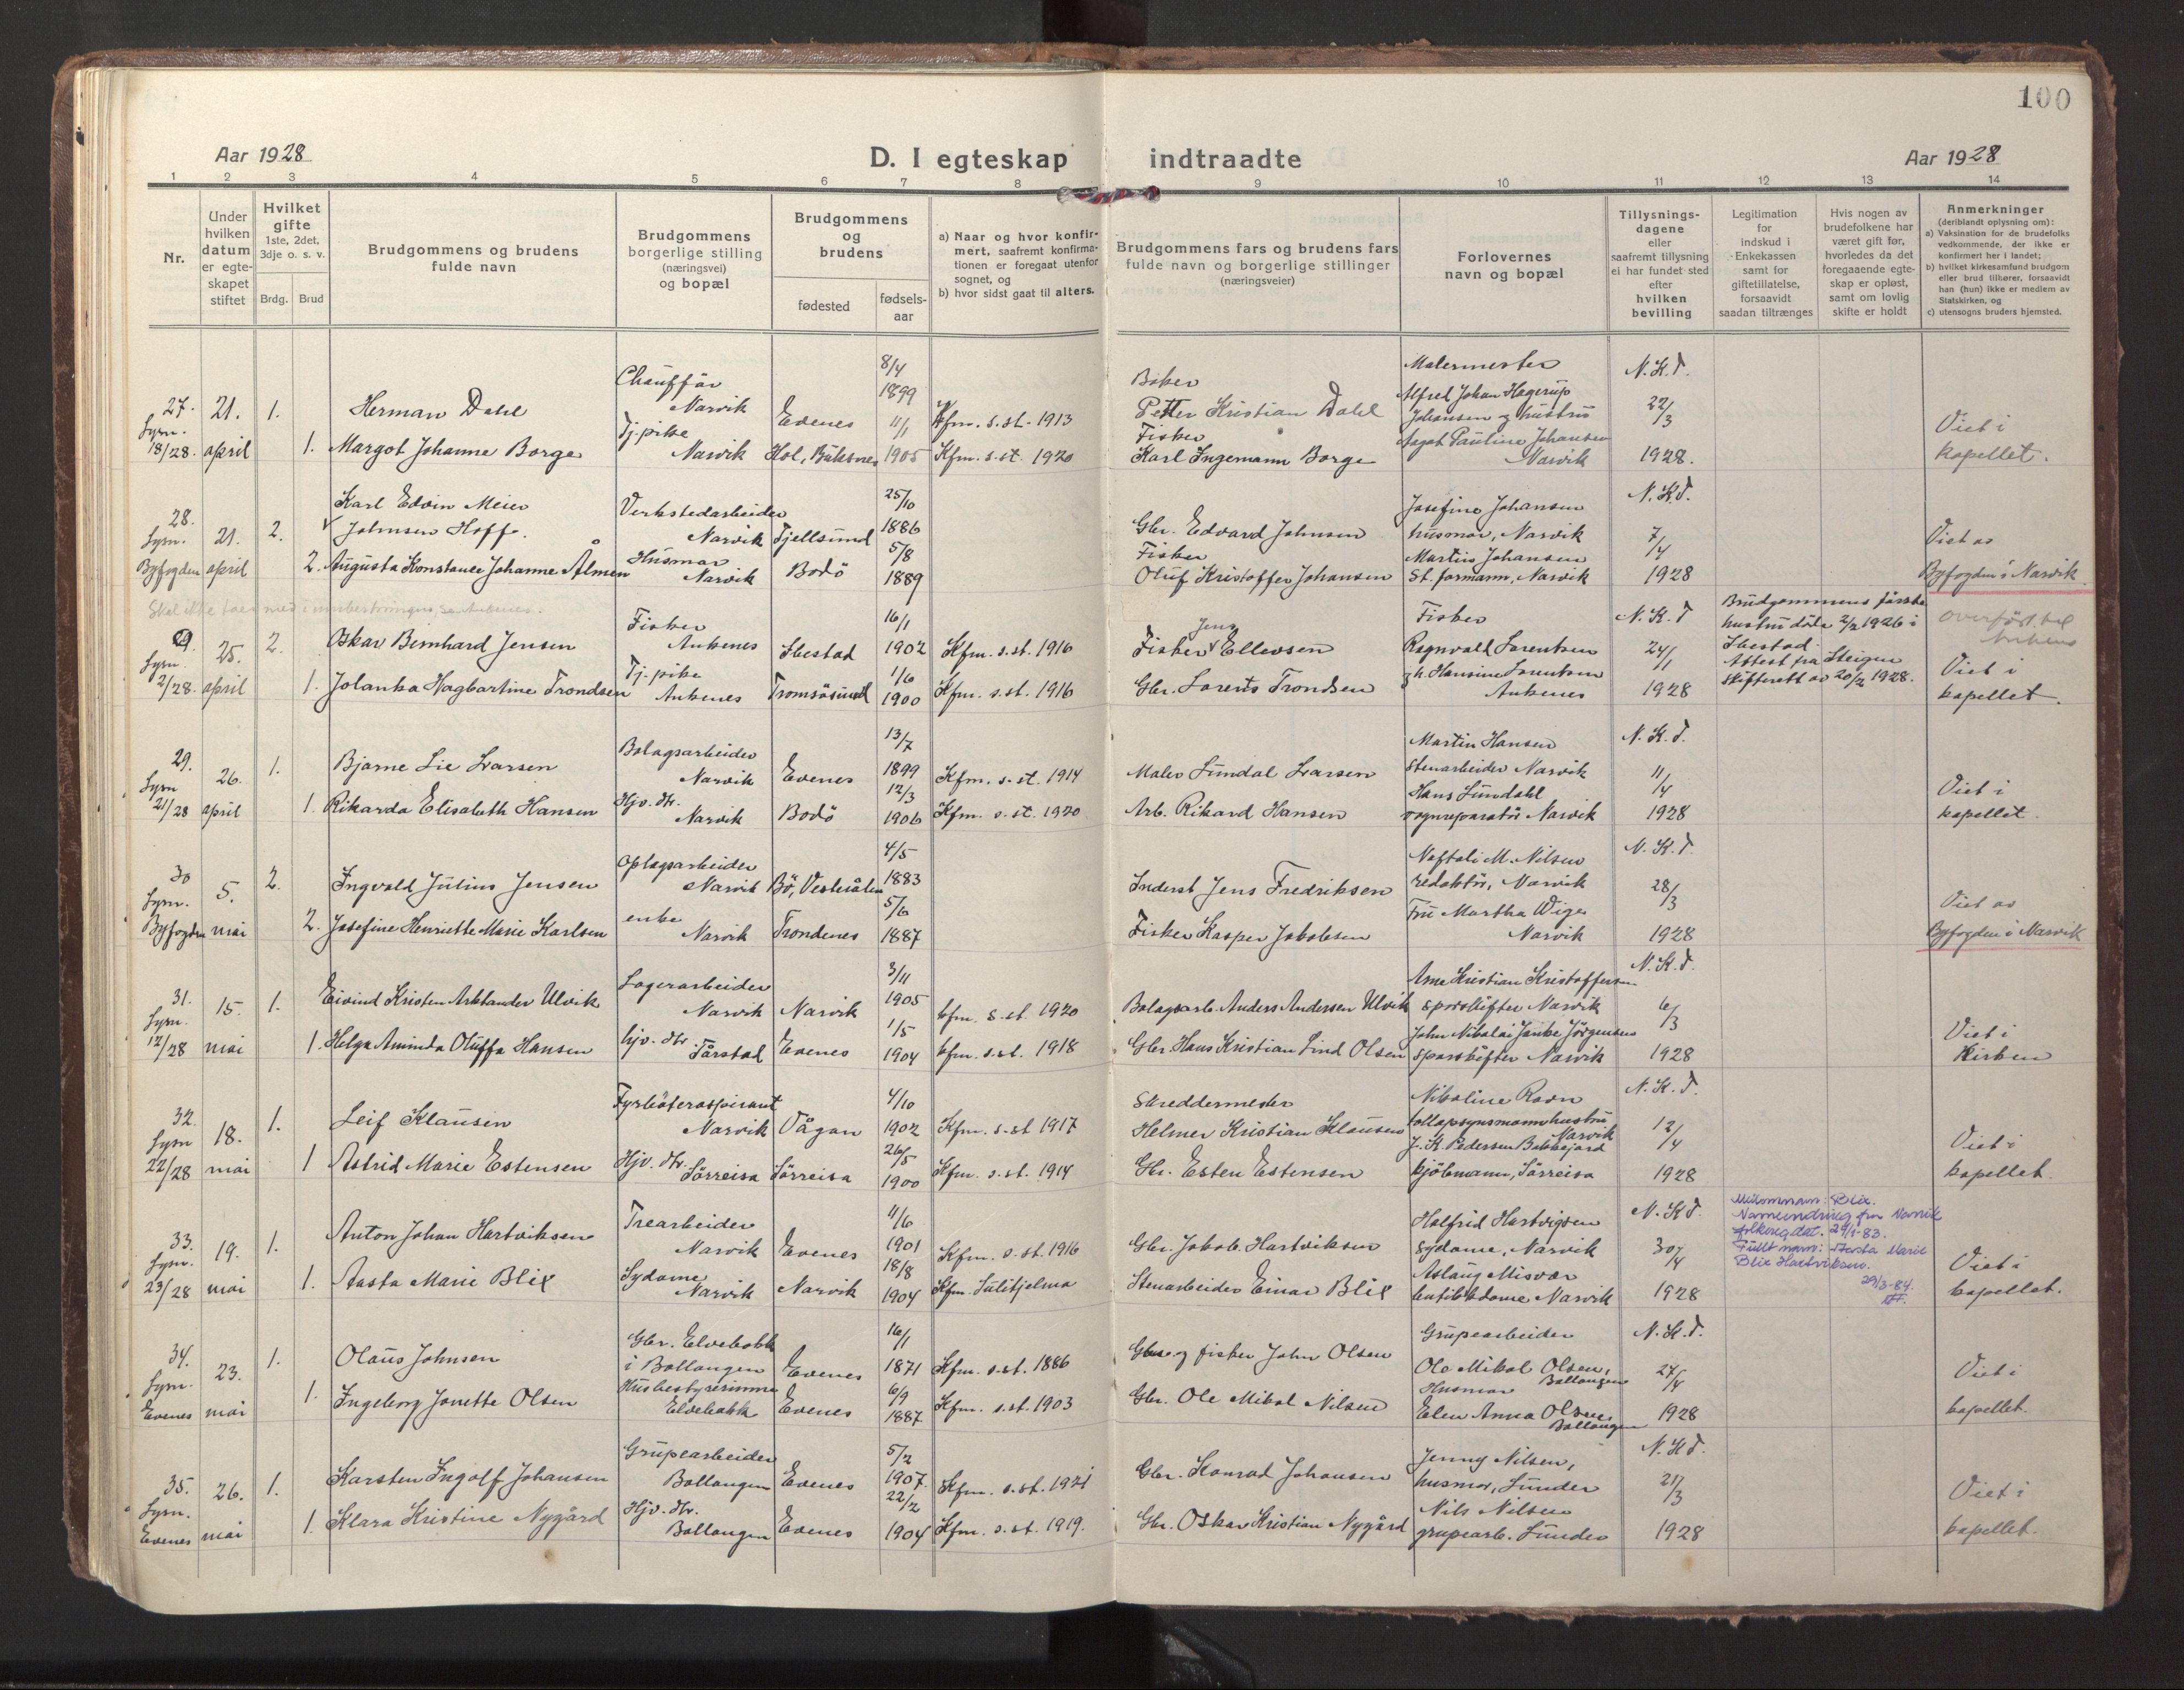 100
Aar 1928
D. I egteskap indtraadte
Aar 1928
1 2 3 4 5 6 7 8 9 10 11 12 13 14
Nr.
Under hvilken datum er egte-skapet stiftet
Hvilket gifte 1ste, 2det, 3dje o. s. v.
Brdg. Brud
Brudgommens og brudens fulde navn
Brudgommens borgerlige stilling (næringsvei) og bopæl
Brudgommens og brudens
fødested
fødsels-aar
a) Naar og hvor konfir-mert, saafremt konfirma-tionen er foregaat utenfor sognet, og
b) hvor sidst gaat til alters.
Brudgommens fars og brudens fars fulde navn og borgerlige stillinger (næringsveier)
Forlovernes navn og bopæl
Tillysnings-dagene eller saafremt tillysning ei har fundet sted efter hvilken bevilling
Legitimation for indskud i Enkekassen samt for giftetillatelse, forsaavidt saadan tiltrænges
Hvis nogen av brudefolkene har været gift før, hvorledes da det foregaaende egte-skap er opløst, samt om lovlig skifte er holdt
Anmerkninger (deriblandt oplysning om):
a) Vaksination for de brudefolks vedkommende, der ikke er konfirmert her i landet;
b) hvilket kirkesamfund brudgom eller brud tilhører, forsaavidt han (hun) ikke er medlem av Statskirken, og
c) utensogns bruders hjemsted.
27. Lysn. 18/28.
21. april
1. Herman Dahl
Chauffør Narvik
Evenes
8/4 1899
Kfm. s. st. 1913
Baker
Petter Kristian Dahl
Malermester
Alfred Johan Hagerup
Johansen og hustru
Aagot Pauline Johansen
Narvik
N. K. T.
22/3
1928.
1. Margot Johanne Borge
Tj. pike Narvik
Hol, Buksnes
11/1 1905
Kfm. s. st. 1920
Fisker
Karl Ingemann Borge
Viet i
kapellet.
28. Lysn. Byfogden
21. april
2. Karl Edvin Meier
Johnsen Hoff.
Verkstedarbeider
Narvik
Tjellsund
25/10 1886
Gbr. Edvard Johnsen
Josefine Johansen
husmor, Narvik
Martin Johansen
St. formann, Narvik
N. K. T.
7/4
1928
2. Augusta Konstance Johanne Ålmen
Husmor
Narvik
Bodø
5/8 1889
Fisker
Oluf Kristoffer Johansen
Viet av
Byfogden i Narvik
Skal ikke taes med i
29. Lysn. 2/28.
25. april
2. Oskar Bernhard Jensen
Fisker
Ankenes
Ibestad
16/1 1902
Kfm. s. st. 1916
Jens
Fisker Ellevsen
Fisker
Ragnvald Lorentsen
g. h. Hansine Lorentsen
Ankenes
N. K. T
24/1
1928
Brudgommens første
hustru døde 2/2 1926 i
Ibestad.
Attest fra Steigen
skifterett av 20/2 1928.
overført til
Ankenes
1. Jolanka Hagbartine Trondsen
Tj. pike
Ankenes
Tromsøsund
1/6 1900
Kfm. s. st. 1916
Gbr. Lorents Trondsen
Viet i
kapellet.
29. Lysn 21/28
26. april
1. Bjarne Lie Larsen
Bolagsarbeider
Narvik
Evenes
13/7 1899
Kfm. s. st. 1914
Maler Lundal Larsen
Martin Hansen
Stenarbeider Narvik
Hans Lundahl
vognreparatør Narvik
N. K. T.
11/4
1928
1. Rikarda Elisabeth Hansen
Hjv. dtr.
Narvik
Bodø
12/3 1906
Kfm. s. st. 1920
Arb. Rikard Hansen
Viet i
kapellet.
30 Lysn. Byfogden
5. mai
2. Ingvald Julius Jensen
Oplagsarbeider
Narvik
Bø, Vesterålen
4/5 1883
Inderst Jens Fredriksen
Naftali M. Nilsen
redaktør, Narvik
Fru Martha Wige
Narvik
N. K. T.
28/3
1928
2. Josefine Henriette Marie Karlsen
enke
Narvik
Trondenes
5/6 1887
Fisker Kasper Jakobsen
Viet av
Byfogden i Narvik
31. Lysn. 12/28
15. mai
1. Eivind Kristen Arktander Ulvik
Lagerarbeider
Narvik
Narvik
3/11 1905
kfm. s. st. 1920
Bolagsarb. Anders Andersen Ulvik
Arne Kristian Kristoffersen
sporskifter Narvik
John Nikolai Janke Jørgensen
sporskifter Narvik
N. K. T.
6/3
1928
1. Helga Aminda Oluffa Hansen
hjv. dtr.
Tårstad
Evenes
1/5 1904
kfm. s. st. 1918
Gbr. Hans Kristian Lind Olsen
Viet i
Kirken
32. Lysn 22/28
18. mai
1. Leif Klausen
Fyrbøteraspirant
Narvik
Vågan
4/10 1902
Kfm. s. st 1917
Skreddermester
Helmer Kristian Klausen
Nikoline Ravn
tollopsynsmannhustru
Narvik
J. K. Pedersen Bakkejord
kjøbmann, Sørreisa
N. K. T.
12/4
1928
1 Astrid Marie Estensen
Hjv. dtr.
Sørreisa
Sørreisa
26/5 1900
Kfm. s. st. 1914
Gbr. Esten Estensen
Viet i
kapellet.
33. Lysn. 23/28
19. mai
1. Anton Johan Hartviksen
Trearbeider
Narvik
Evenes
11/6 1901
Kfm. s. st. 1916
Gbr. Jakob Hartviksen
Halfrid Hartvigsen
sydame, Narvik
Aslaug Misvær
butikkdame Narvik
N. K. T.
30/4
1928
Mellomnavn: Blix.
Navneendring fra Narvik
folkereg dat. 29/1-83.
Fullt navn: Aasta Marie
Blix Hartviksen.
29/3-84.
1. Aasta Marie Blix
Sydame
Narvik
Narvik
18/8 1904
Kfm. Sulitjelma
Stenarbeider Einar Blix
Viet i
kapellet.
34. Lysn. Evenes
23. mai
1. Olaus Johnsen
Gbr. Elvebakk
i Ballangen
Evenes
16/1 1871
Kfm. s. st. 1886
Gbr. og fisker John Olsen
Grupearbeider
Ole Mikal Olsen,
Ballangen
Husmor
Elen Anna Olsen,
Ballangen
N. K. T.
27/4
1928
1. Ingeborg Jonette Olsen
Husbestyrerinne
Elvebakk
Evenes
6/9 1887
Kfm. s. st. 1903
Gbr. Ole Mikal Nilsen
Viet i
kapellet.
35. Lysn. Evenes
26. mai
1. Karsten Ingolf Johansen
Grupearbeider
Ballangen
Evenes
5/2 1907.
Kfm. s. st. 1921
Gbr. Konrad Johansen
Jenny Nilsen,
husmor, Sunder
Nils Nilsen
grupearb. Sunder
N. K T.
21/3
1928
1. Klara Kristine Nygård
Hjv. dtr.
Ballangen
Evenes
22/2 1904
Kfm. s. st. 1919.
Gbr. Oskar Kristian Nygård
Viet i
kapellet.